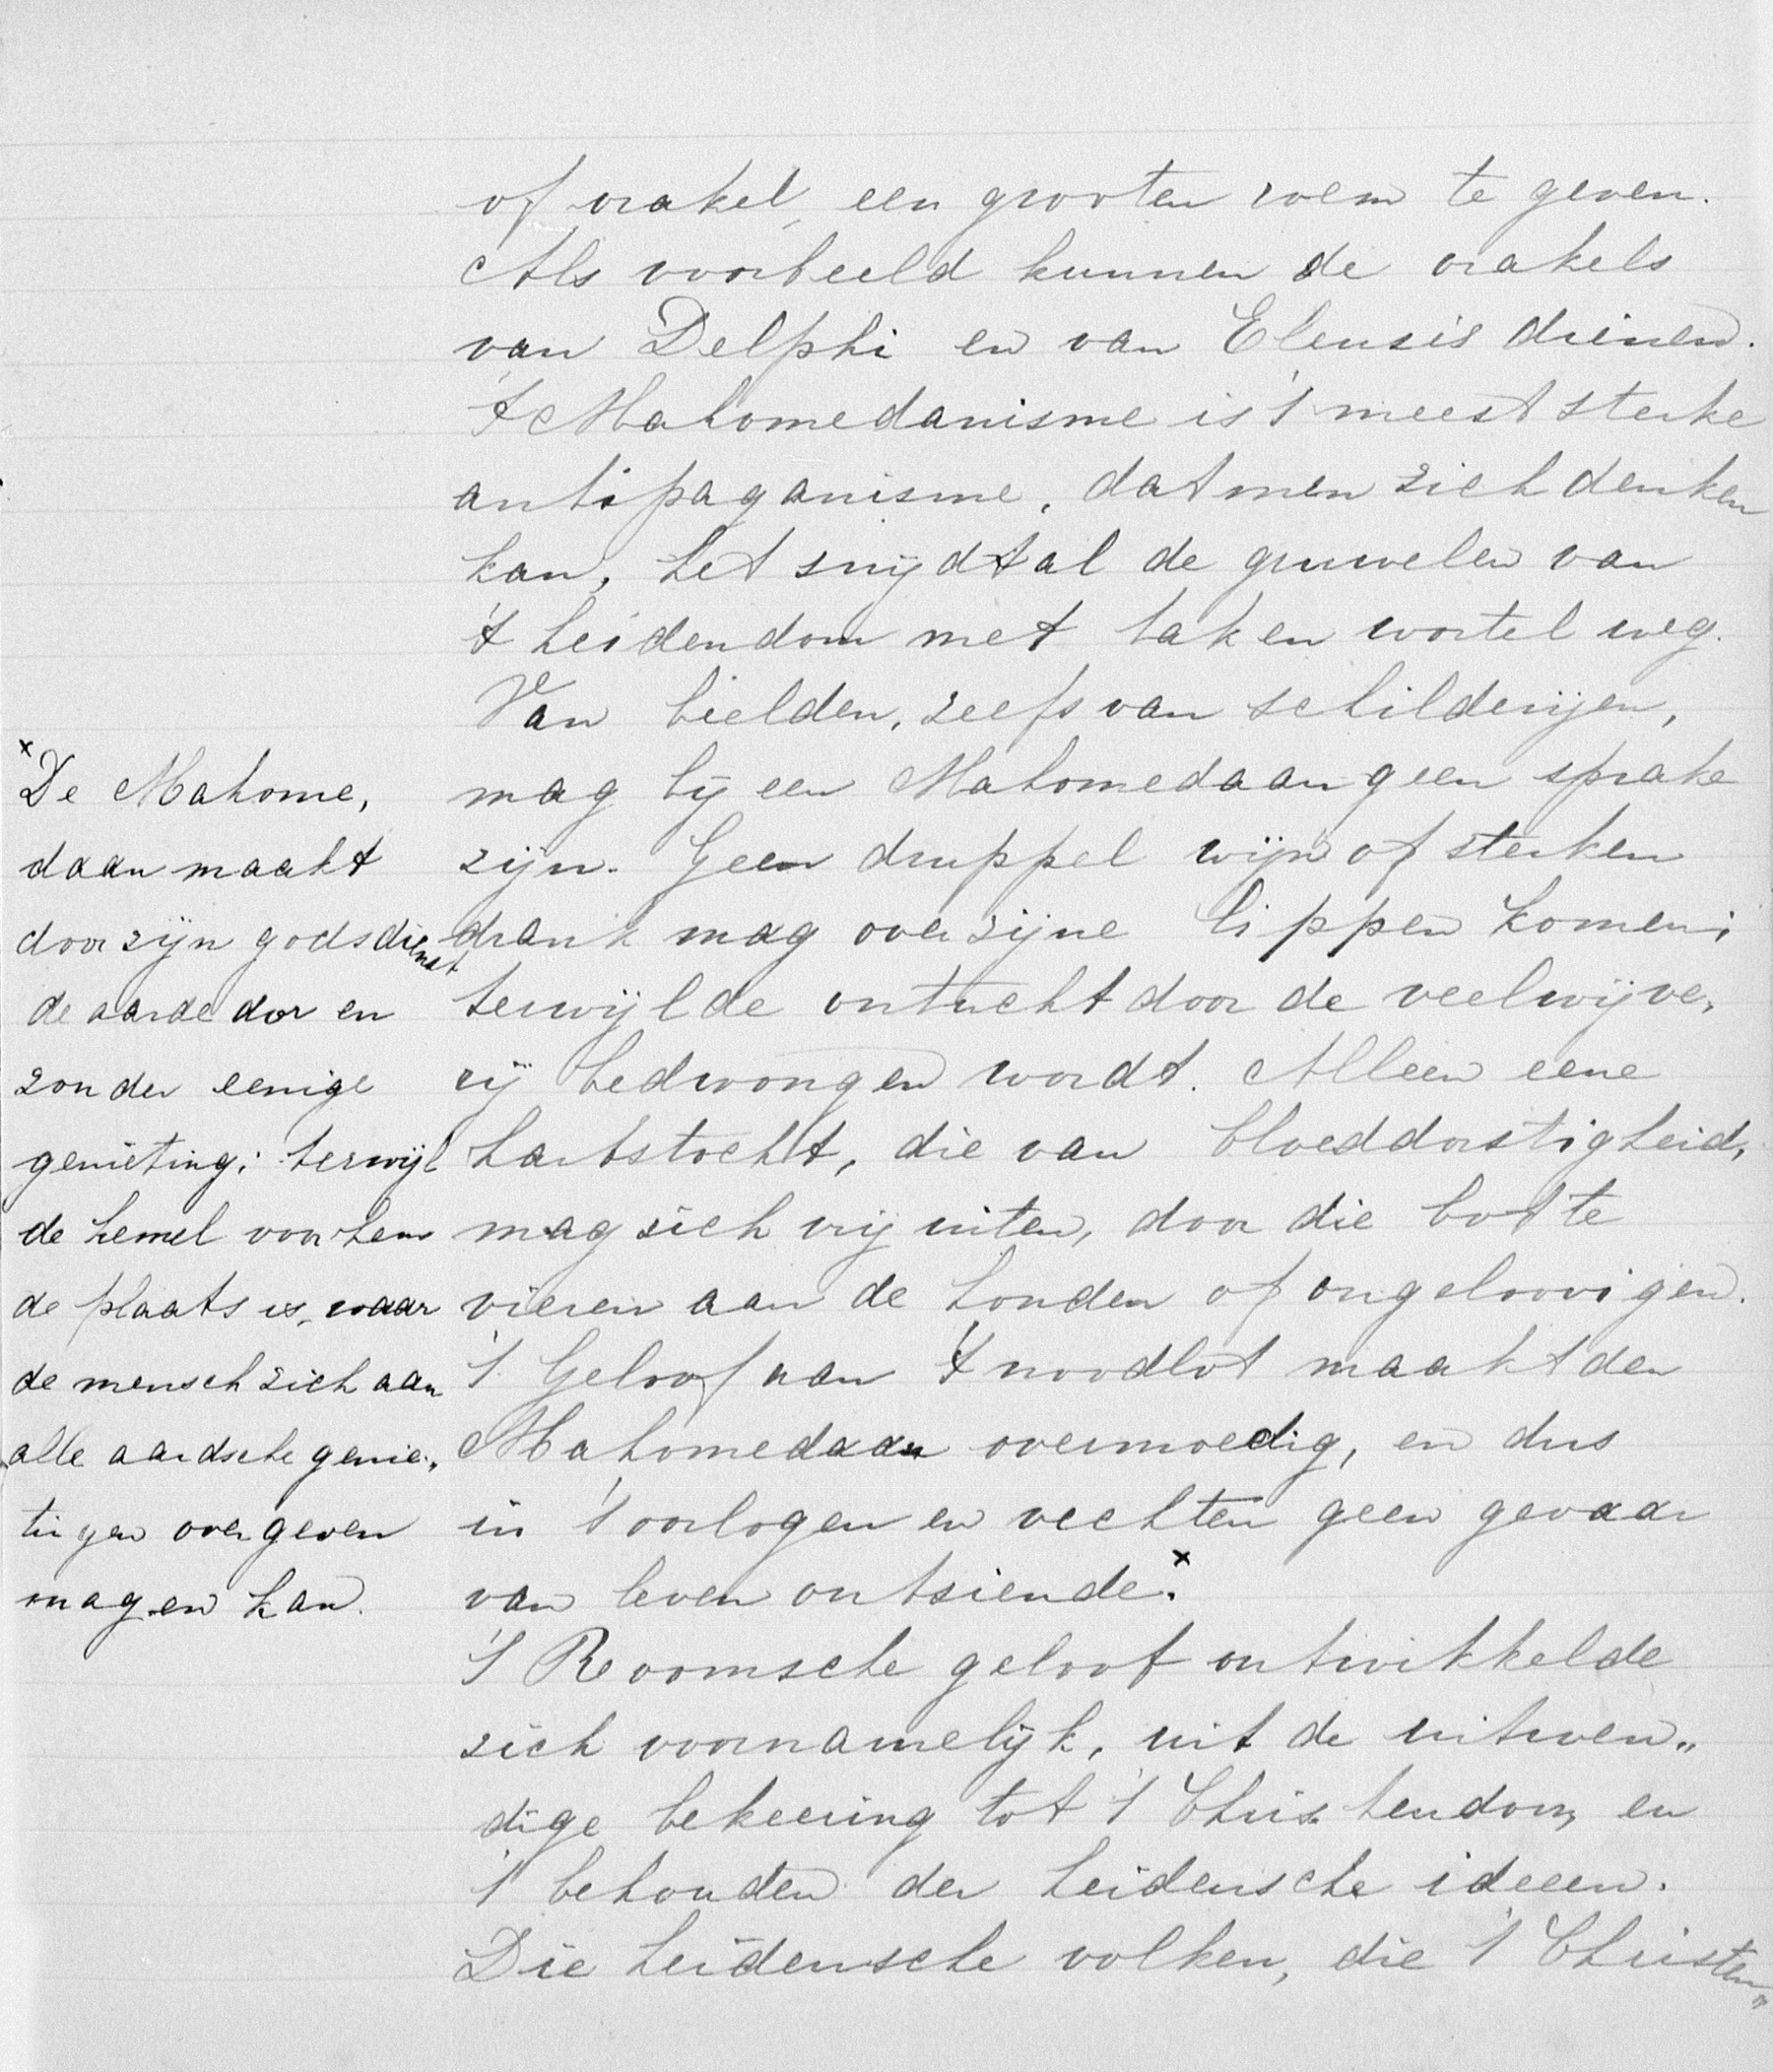 of orakel een grooten roem te geven.
Als voorbeeld kunnen de orakels
van Delphi en van Eleusis dienen.
't Mahomedanisme is 't meest sterke
antipaganisme, dat men zich denken
kan, het snijdt al de gruwelen van
't heidendom met tak en wortel weg.
Van beelden, zelfs van schilderijen,
mag bij een Mahomedaan geen sprake
zijn. Geen druppel wijn of sterken
drank mag over zijne lippen komen;
terwijl de ontucht door de veelwijve„
rij bedwongen wordt. Alleen eene
hartstocht, die van bloeddorstigheid,
mag zich vrij uiten, door die bot te
vieren aan de honden of ongeloovigen.
't Geloof aan 't noodlot maakt den
Mahomedaan overmoedig, en dus
in 't oorlogen en vechten geen gevaar
van leven ontziende.x
't Roomsche geloof ontwikkelde
zich voornamelijk, uit de uitwen„
dige bekeering tot 't Christendom, en
't behouden der heidensche ideeen.
Die heidensche volken, die 't Christen„
x De Mahome„
daan maakt
door zijn godsdienst
de aarde dor en
zonder eenige
genieting; terwijl
de hemel voor hem
de plaats is, waar
de mensch zich aan
alle aardsche genie„
tingen overgeven
mag en kan.